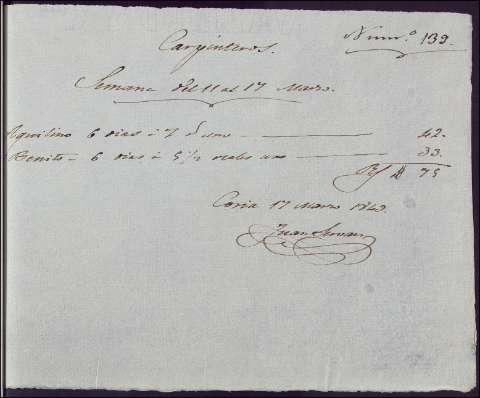 Num.º 139.
Carpinteros.
Semana del 11 al 17 Marzo.
Aquilino 6 dias à 7 uno 42.
Benito 6 dias à 5 1/2 reales uno 33.
75
Coria 17 Marzo 1849.
Juan